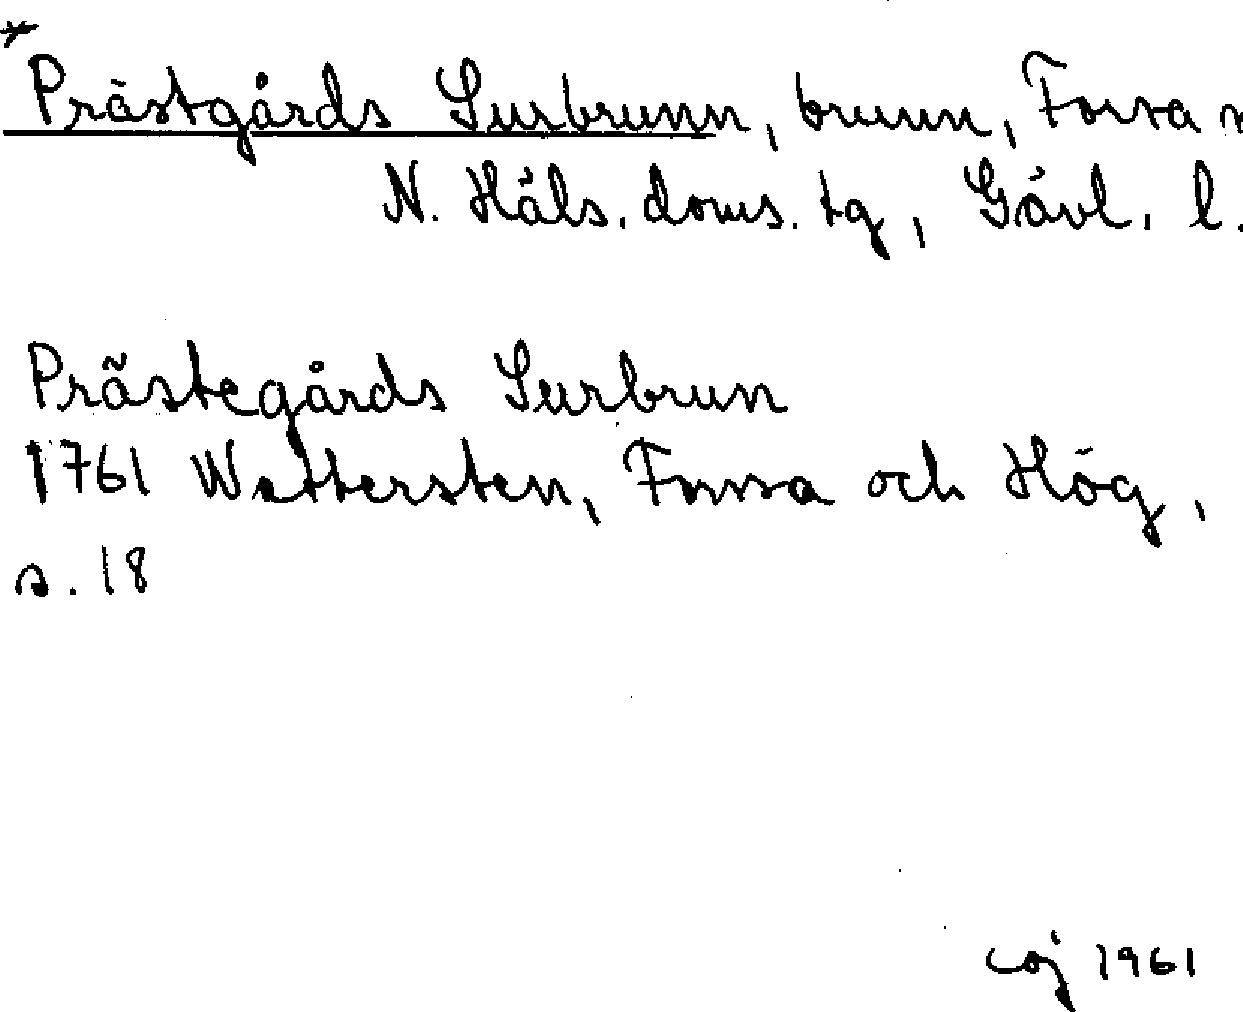 *
Prästgårds Surbrunn, brunn, Forsa
N. Häls. doms. tg, Gävl. l.
Prästegårds Surbrun
1761 Wettersten, Forssa och Hög,
s. 18
coj 1961